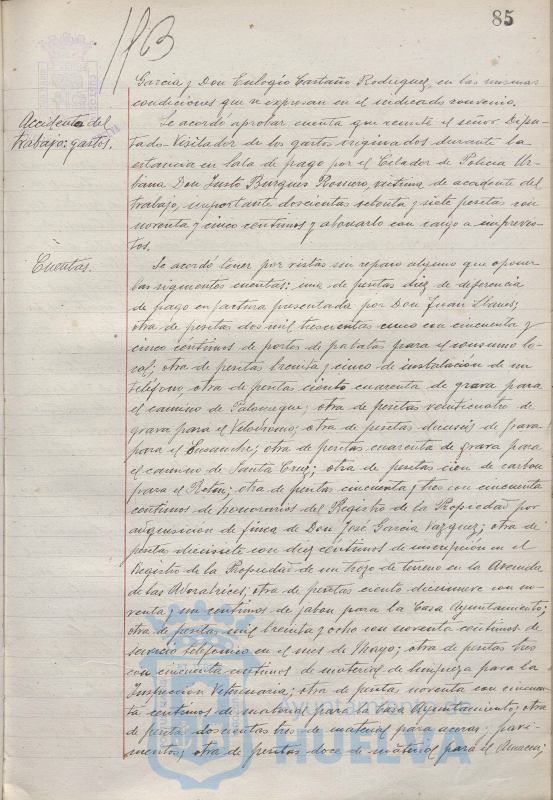 85
García y Don Eulogio Castaño Rodríguez, en las mismas
condiciones que se expresan en el indicado convenio.
Accidente del
trabajo: gastos.
Se acordó aprobar cuenta que remite el señor Dipu-
tado-Visitador de los gastos originados durante la
estancia en de pago por el Celador de Policía Ur-
bana Don Justo Burgues Rossero, víctima de accidente del
trabajo, importante doscientas setenta y siete pesetas con
noventa y cinco céntimos y abonarlo con cargo a imprevis-
tos.
Cuentas.
Se acordó tener por vistas sin reparo alguno que oponer
las siguientes cuentas: una de pesetas diez de diferencia
de pago en factura presentada por Don Juan Llanes;
otra de pesetas dos mil trescientas cinco con cincuenta y
cinco céntimos de portes de patatas para el consumo lo-
cal; otra de pesetas treinta y cinco de instalación de un
teléfono, otra de pesetas ciento cuarenta de grava para
el camino de Palomeque; otra de pesetas veinticuatro de
grava para el Velodromo; otra de pesetas dieciseis de grava
para el Ensanche; otra de pesetas cuarenta de grava para
el camino de Santa Cruz; otra de pesetas cien de carbon
para el Reten; otra de pesetas cincuenta y tres con cincuenta
centimos de honorarios del Registro de la Propiedad por
adquisición de finca de Don José García Vázquez; otra de
pesetas diecisiete con diez céntimos de inscripción en el
Registro de la Propiedad de un trozo de terreno en la Avenida
de las Adoratrices; otra de pesetas ciento diecinueve con no-
venta y un centimos de jabon para la Casa Ayuntamiento;
otra de pesetas mil treinta y ocho con noventa centimos de
servicio telefónico en el mes de Mayo; otra de pesetas tres
con cincuenta centimos de material de limpieza para la
Inspección Veterinaria; otra de pesetas noventa con cincuen-
ta centimos de material para la Casa Ayuntamiento; otra
de pesetas doscientas tres de material para aceras y pavi-
mentos; otra de pesetas doce de material para el Almacen;
Ayuntamiento de
HUELVA